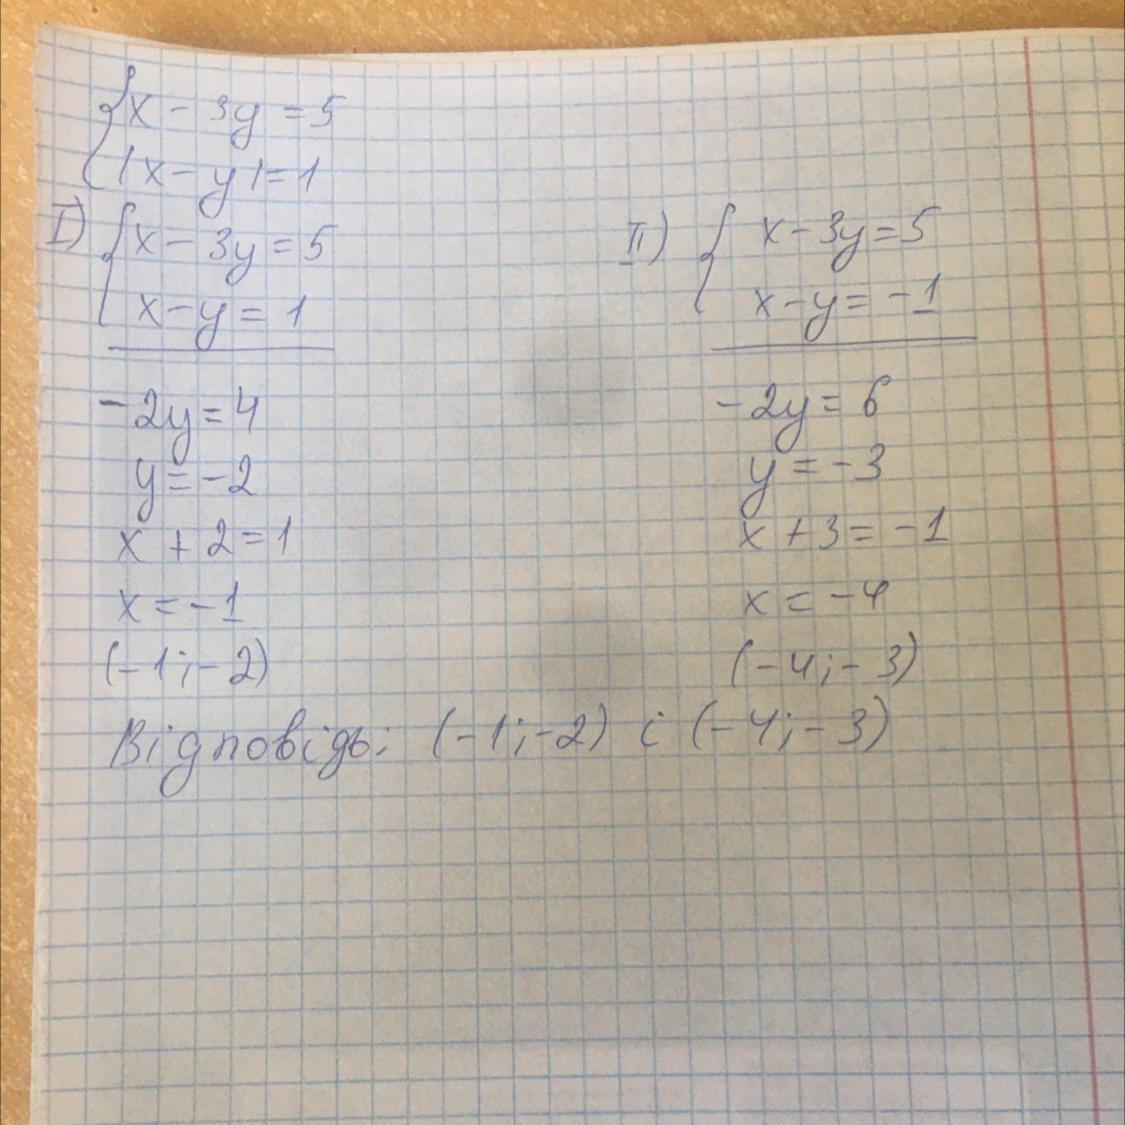 x - 3y = 5
|x - y| = 1
I) { x - 3y = 5
x - y = 1
-2y = 4
y = -2
x + 2 = 1
x = -1
(-1; -2)
II) { x - 3y = 5
x - y = -1
-2y = 6
y = -3
x + 3 = -1
x = -4
(-4; -3)
Відповідь: (-1; -2) і (-4; -3)